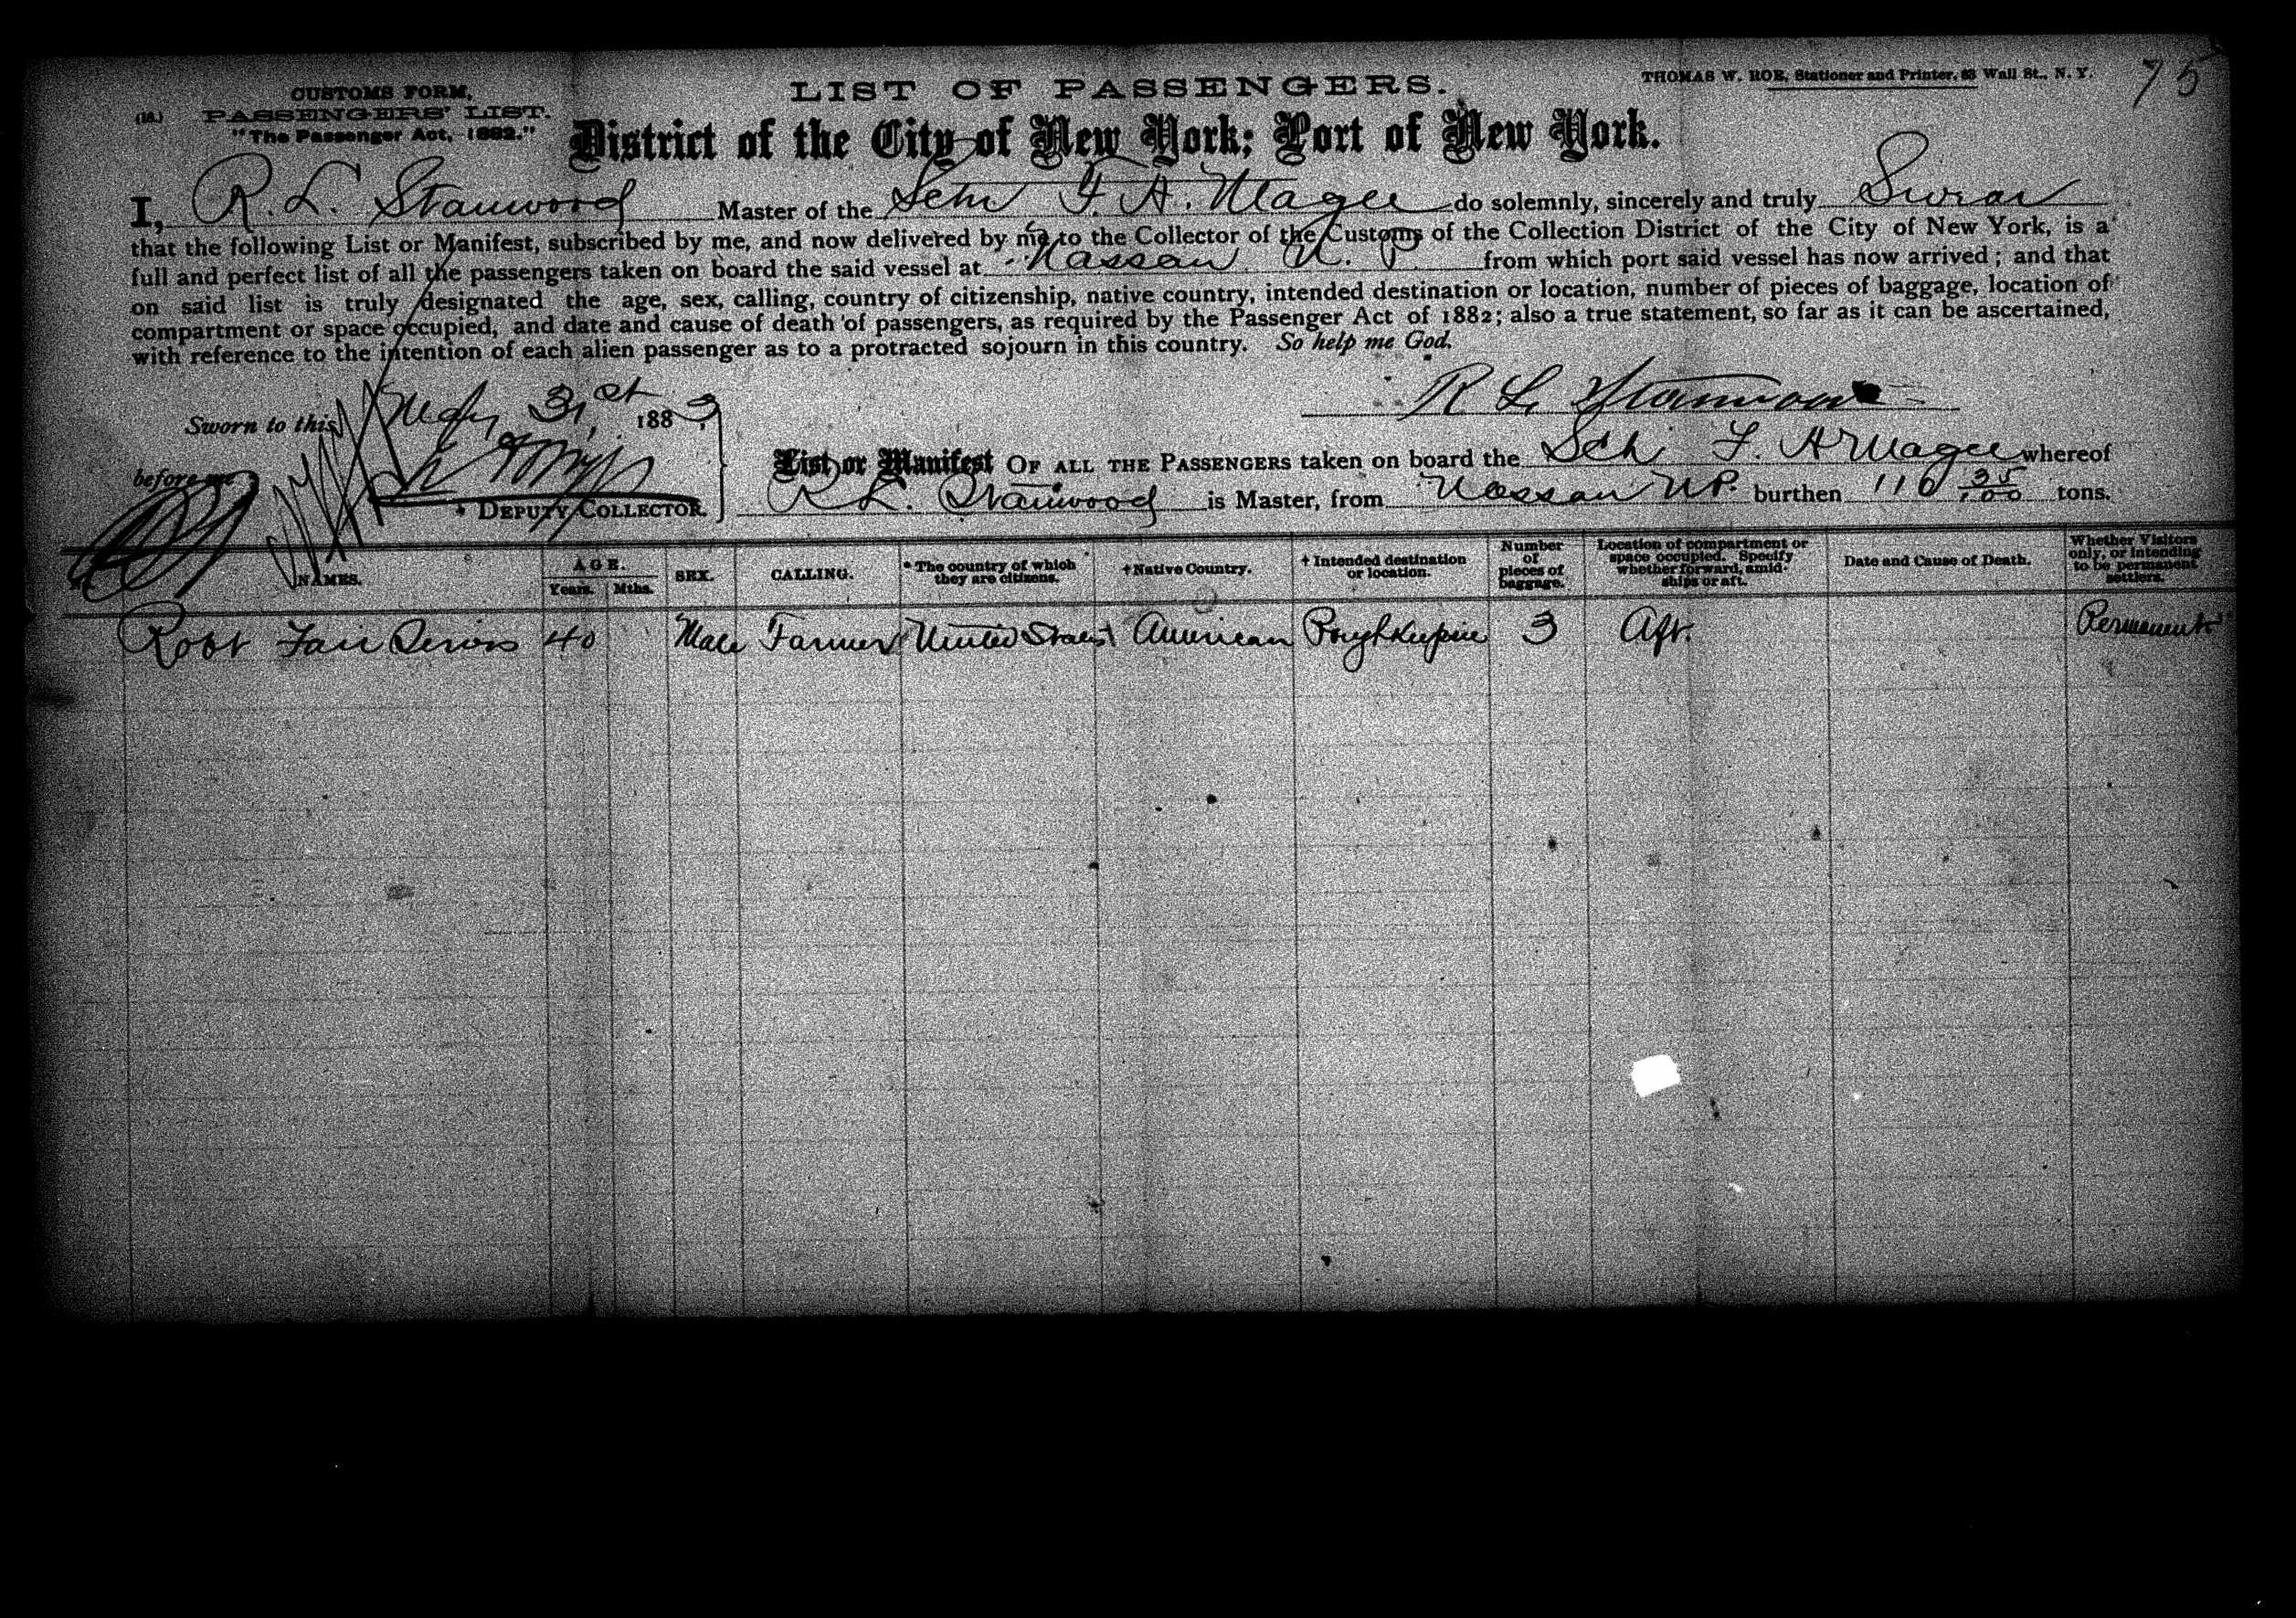 75
THOMAS W. ROE, Stationer and Printer, 83 Wall St., N. Y.
CUSTOMS FORM,
(18.) PASSENGERS' LIST.
"The Passenger Act, 1882."
LIST OF PASSENGERS.
District of the City of New York; Port of New York.
I, R. L. Stanwood Master of the Schr F. A. Magee do solemnly, sincerely and truly Swear
that the following List or Manifest, subscribed by me, and now delivered by me to the Collector of the Customs of the Collection District of the City of New York, is a
full and perfect list of all the passengers taken on board the said vessel at Nassau N. P from which port said vessel has now arrived; and that
on said list is truly designated the age, sex, calling, country of citizenship, native country, intended destination or location, number of pieces of baggage, location of
compartment or space occupied, and date and cause of death of passengers, as required by the Passenger Act of 1882; also a true statement, so far as it can be ascertained,
with reference to the intention of each alien passenger as to a protracted sojourn in this country. So help me God.
R L Stanwood
Sworn to this 31st 1883
before me
DEPUTY COLLECTOR.
List or Manifest OF ALL THE PASSENGERS taken on board the Sch F. A Magee whereof
R L. Stanwood is Master, from Nassau N.P. burthen 116 35/100 tons.
NAMES. AGE. Years. Mths. SEX. CALLING. * The country of which they are citizens. † Native Country. † Intended destination or location. Number of pieces of baggage. Location of compartment or space occupied. Specify whether forward, amidships or aft. Date and Cause of Death. Whether Visitors only, or intending to be permanent settlers.
Robt Fair 40 Male Farmer United States American Poughkeepsie 3 Aft. Permanent